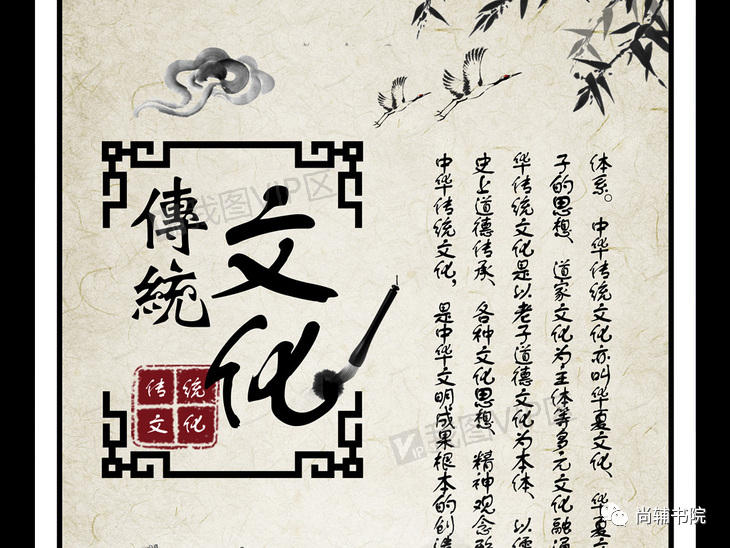 傳統
文化
传统
文化
中华传统文化，是中华文明成果根本的创
史上道德传承、各种文化思想、精神观念
华传统文化是以老子道德文化为本体、以儒
子的思想、道家文化为主体等多元文化融通
体系。中华传统文化亦叫华夏文化、华夏
我图VIP区
VIP 我图VIP区
尚辅书院